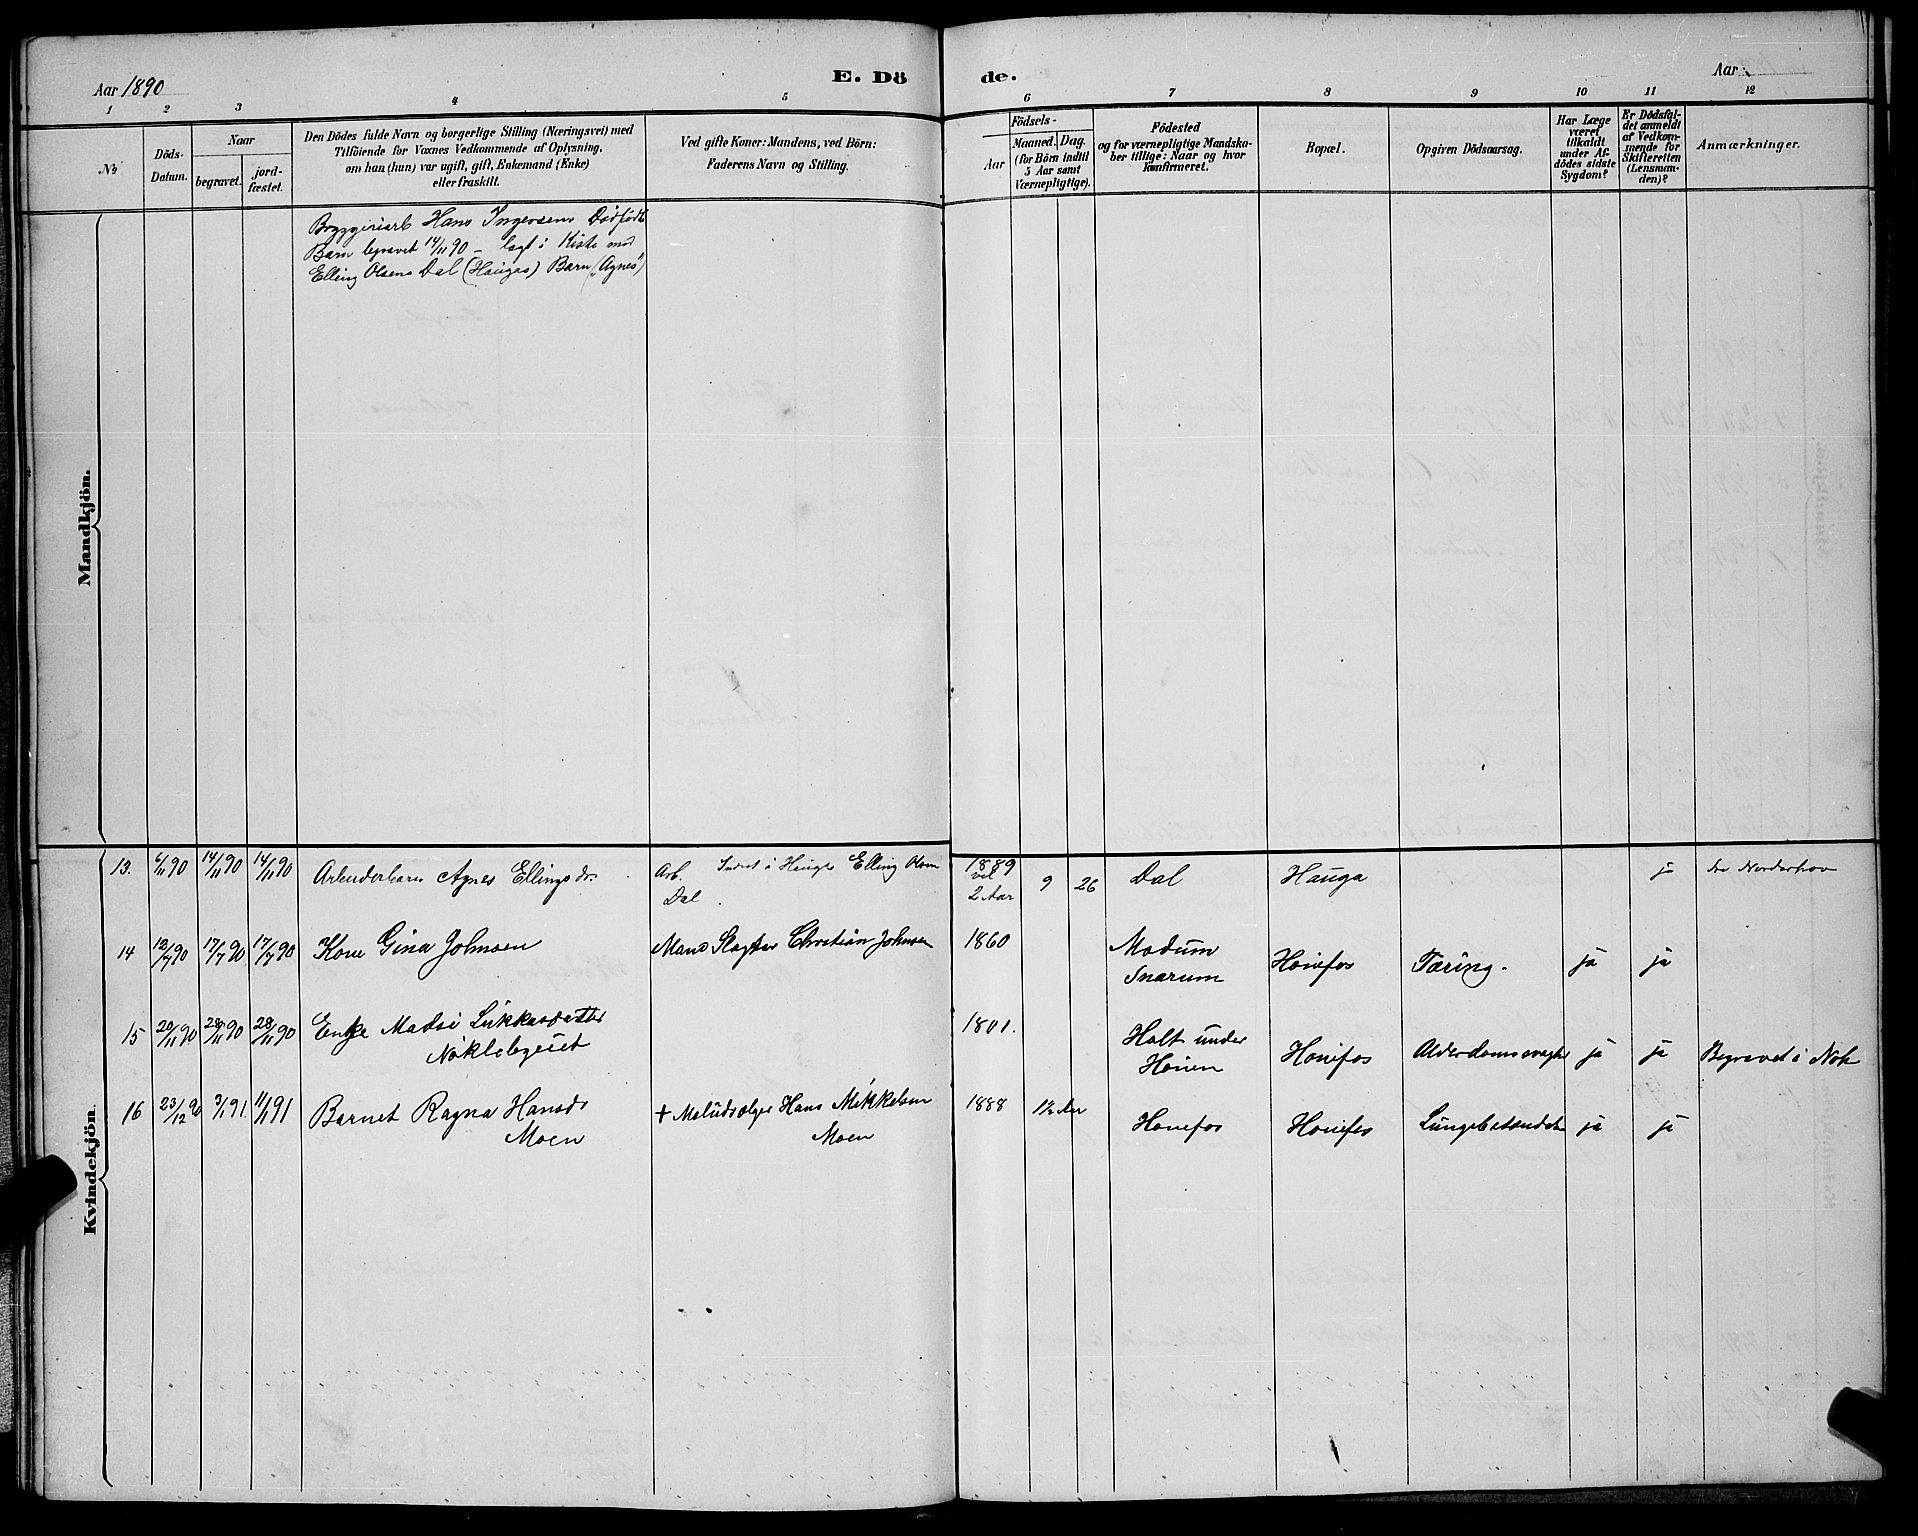 Aar 1890
E. Dö
de.
Aar
1 2 3 4 5 6 7 8 9 10 11 12
No
Döds-
Datum.
Naar
begravet.
jord-
fæstet.
Den Dödes fulde Navn og borgerlige Stilling (Næringsvei) med
Tilföiende for Voxnes Vedkommende af Oplysning,
om han (hun) var ugift, gift, Enkemand (Enke)
eller fraskilt.
Ved gifte Koner: Mandens, ved Börn:
Faderens Navn og Stilling.
Födsels-
Aar
Maaned.
Dag.
(for Börn indtil
5 Aar samt
Værnepligtige).
Födested
og for værnepligtige Mandska-
ber tillige: Naar og hvor
konfirmeret.
Bopæl.
Opgiven Dödsaarsag.
Har Læge
været
tilkaldt
under Af-
dödes sidste
Sygdom?
Er Dödsfal-
det anmeldt
af Vedkom-
mende for
Skifteretten
(Lensman-
den)?
Anmærkninger.
Mandkjön.
Bryggeriarb Hans Ingersens Dødfødt
Barn begravet 14/11 90 - lagt i Kiste med
Elling Olsens Dal (Haugas) Barn "Agnes"
Kvindekjön.
13. 6/11 90 14/11 90 14/11 90 Agnes Ellingsdr. Arb. i Hauga Elling Olsen 1889 9 26 Dal Hauga ja Norderhov
Dal 2 Aar
14 12/7 90 17/7 90 17/7 90 Kone Gina Johnsen Mand Slagter Christian Johnsen 1860 Modum Hønefos Tæring. ja ja
Snarum
15 20/11 90 28/11 90 28/11 90 Enke 1801. Holt under Hønefos ja ja Begravet i Noh
Hønen
16 23/12 90 3/1 91 11/1 91 Barnet Ragna Hansdr + Hans Mikkelsen 1888 1½ Aar Hønefos Hønefos Lungebetændelse ja ja
Moen Moen